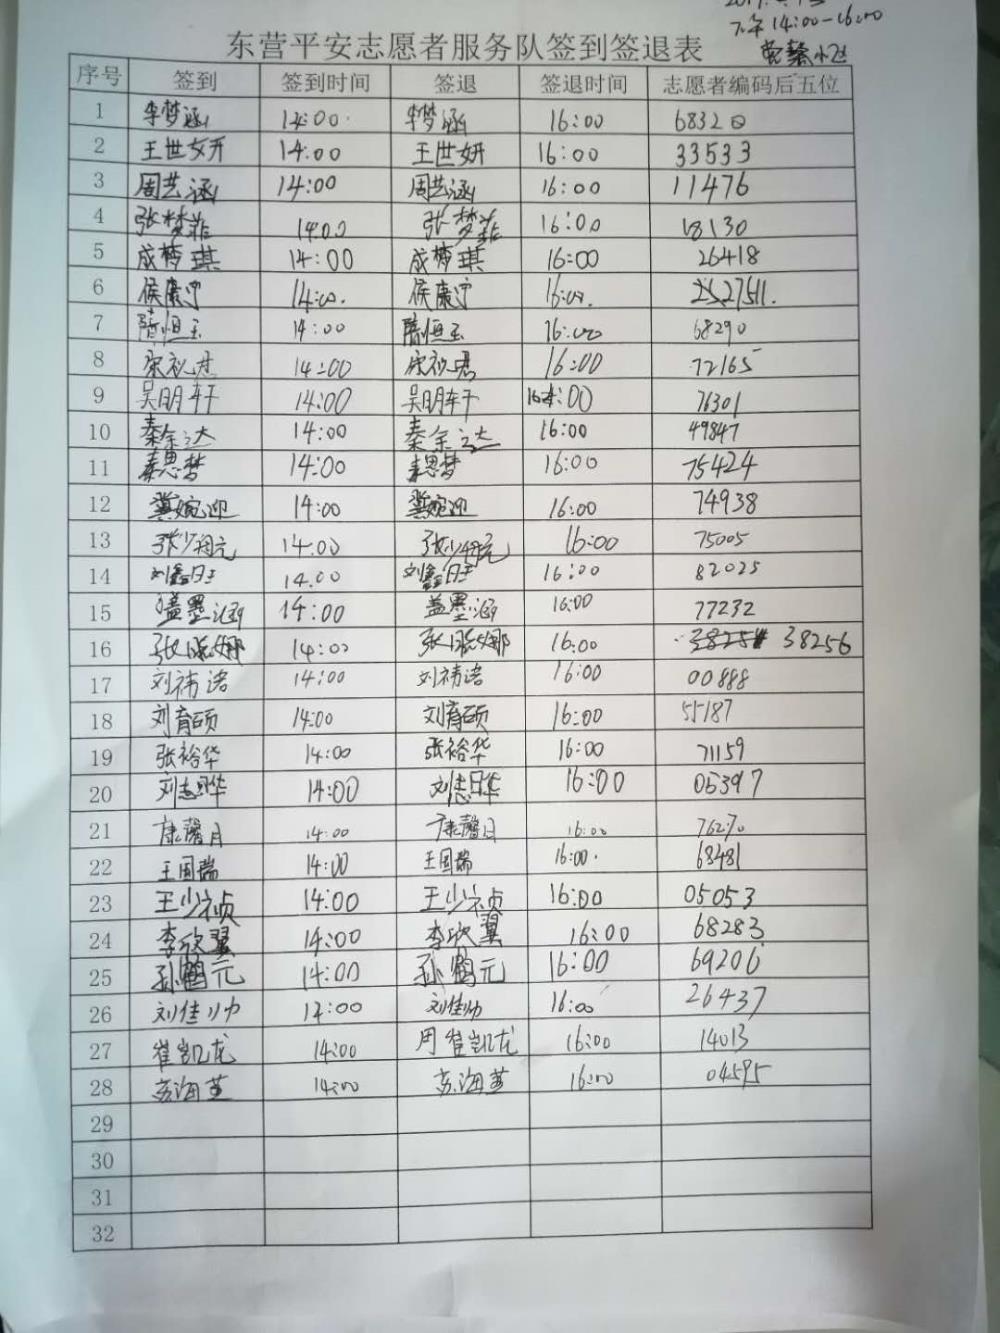 下午14:00-16:00
东营平安志愿者服务队签到签退表
序号 签到 签到时间 签退 签退时间 志愿者编码后五位
1 李梦涵 14:00 李梦涵 16:00 68320
2 王世妍 14:00 王世妍 16:00 33533
3 周艺涵 14:00 周艺涵 16:00 11476
4 张梦菲 14:00 张梦菲 16:00 18130
5 成梦琪 14:00 成梦琪 16:00 26418
6 侯康宁 14:00. 侯康宁 16:00.
7 隋恒玉 14:00 隋恒玉 16:00 68290
8 14:00 16:00 72165
9 吴明轩 14:00 吴明轩 :00 76301
10 秦余达 14:00 秦余达 16:00 49847
11 秦思梦 14:00 秦思梦 16:00 75424
12 冀婉迎 14:00 冀婉迎 16:00 74938
13 14:00 16:00 75005
14 刘鑫钰 14.00 刘鑫钰 16:00 82025
15 盖墨涵 14:00 盖墨涵 16:00 77232
16 14:00 16:00 38256
17 刘祎诺 14:00 刘祎诺 16:00 00888
18 刘育硕 14:00 刘育硕 16:00 55187
19 张裕华 14:00 张裕华 16:00 71159
20 刘志晔 14:00 刘志晔 16:00 05397
21 康馨月 14:00 康馨月 16:00 76270
22 王国瑞 14:00 王国瑞 16:00. 68481
23 王少祯 14:00 王少祯 16:00 05053
24 李欣翼 14:00 李欣翼 16:00 68283
25 孙鹤元 14:00 孙鹤元 16:00 69206
26 刘佳帅 14:00 刘佳帅 16:00 26437
27 崔凯龙 14:00 崔凯龙 16:00 14013
28 14:00 16:00 04595
29
30
31
32